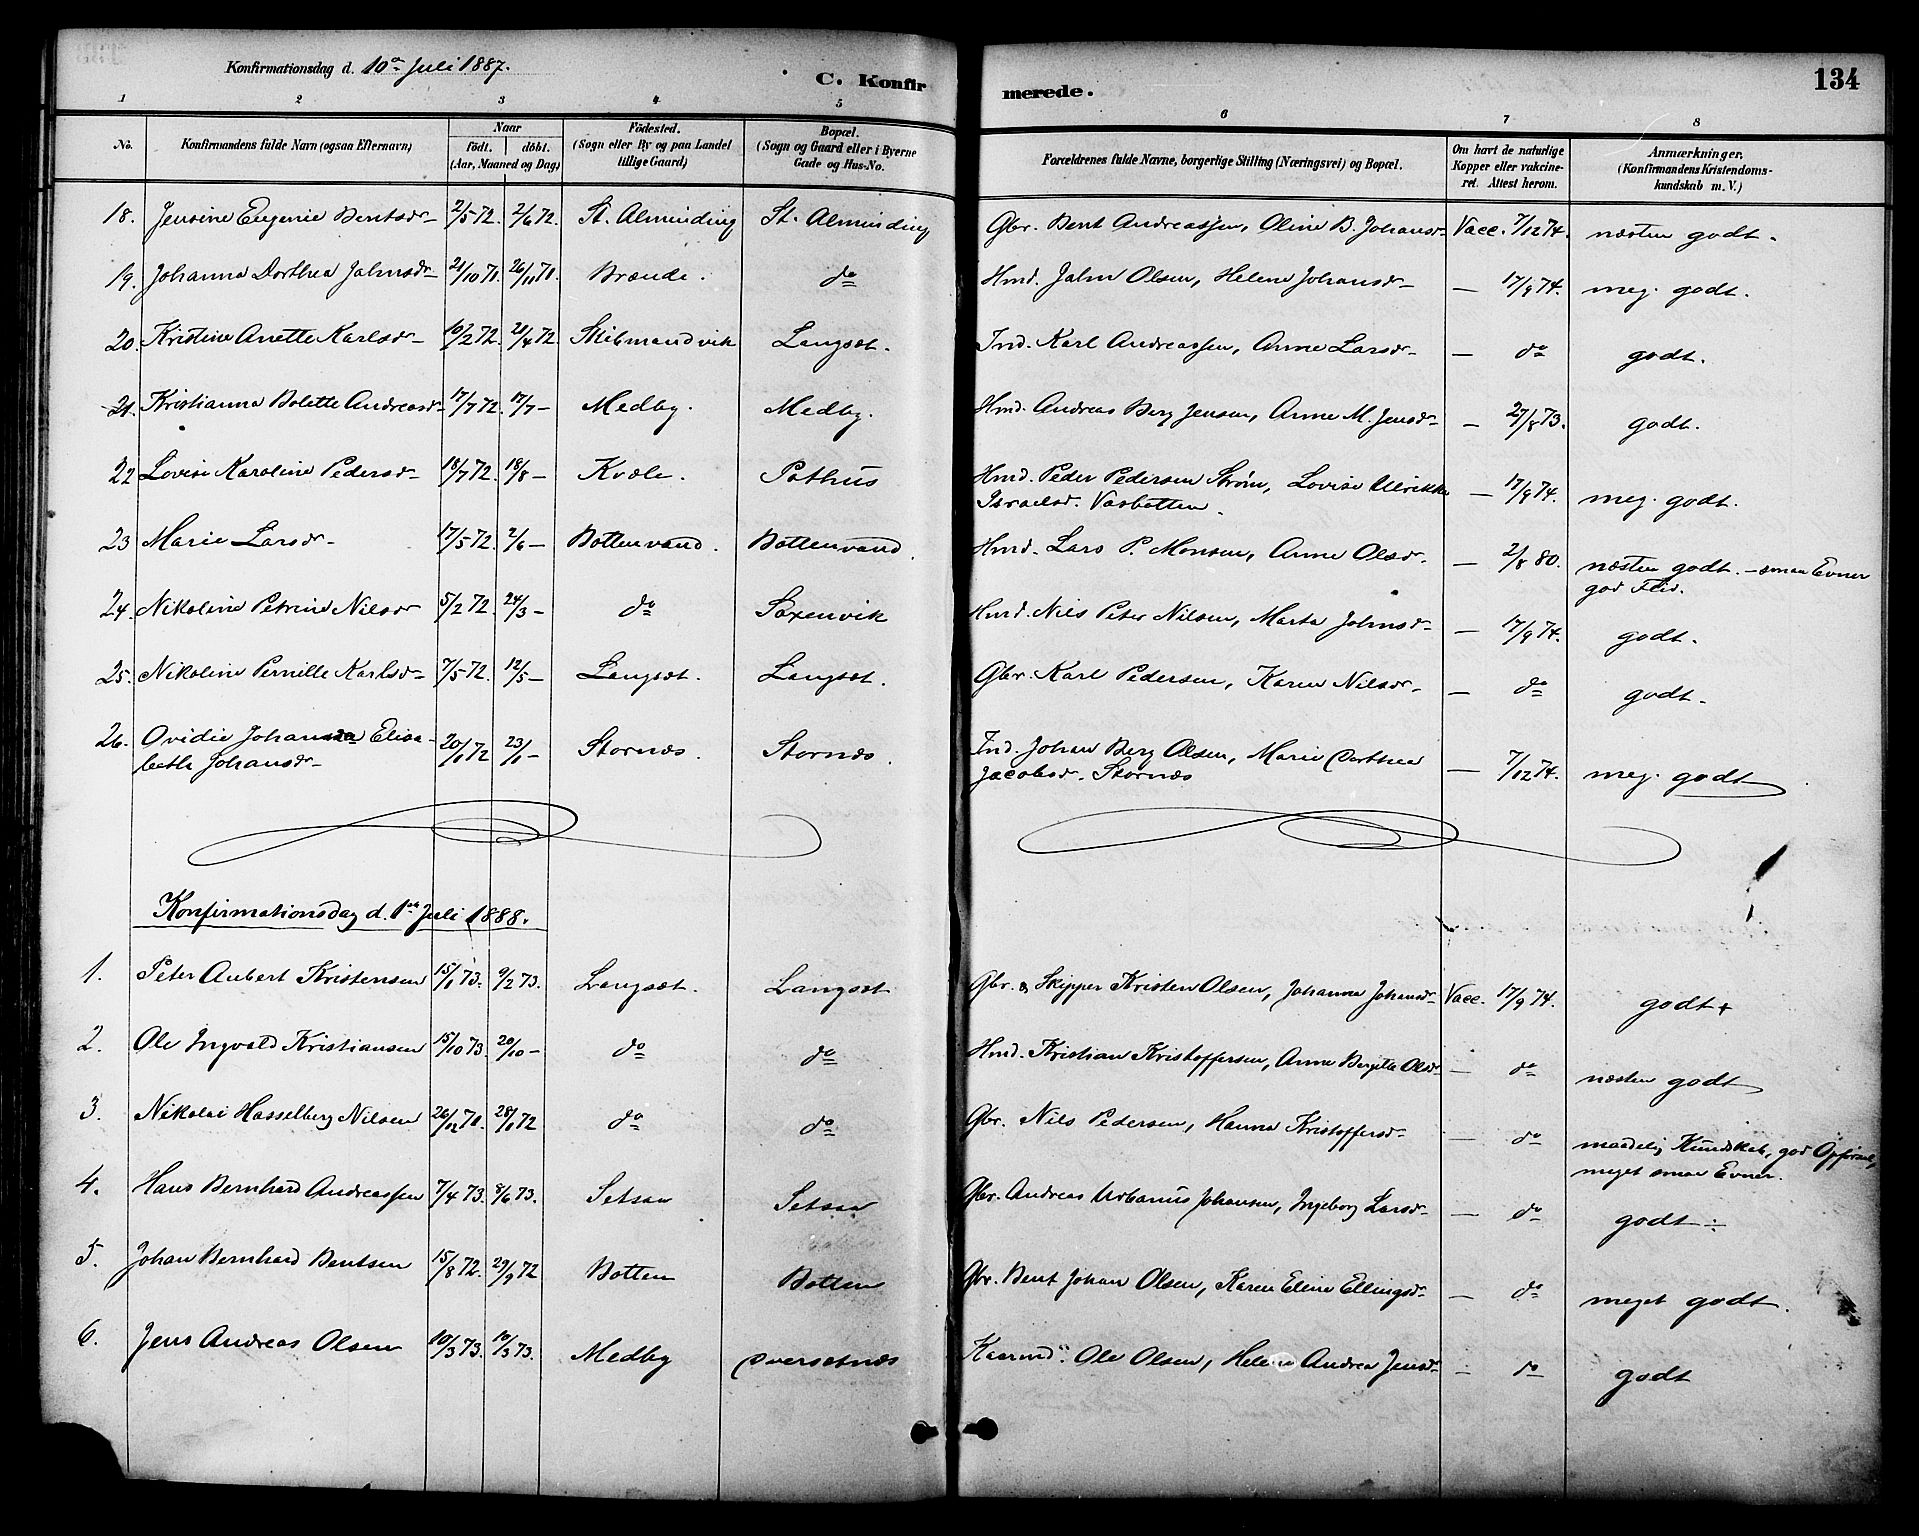 Konfirmationsdag d. 10de Juli 1887.
C. Konfirmerede.
134
1 2 3 4 5 6 7 8
No. Konfirmandens fulde Navn (ogsaa Efternavn) Naar födt. döbt. (Aar, Maaned og Dag) Födested. (Sogn eller By og paa Landet tillige Gaard) Bopæl. (Sogn og Gaard eller i Byerne Gade og Hus-No. Forældrenes fulde Navne, borgerlige Stilling (Næringsvei) og Bopæl. Om havt de naturlige Kopper eller vakcineret. Attest herom. Anmærkninger. (Konfirmandens Kristendomskundskab m. V.)
18. Jensine Eugenie Bentsdr 2/5 72. 2/6 72. St. Alminding St. Alminding Gbr. Bent Andreassen, Oline B. Johansdr Vacc. 7/12 74. næsten godt.
19. Johanna Dorthea Jahnsdr 21/10 71. 26/11 71. Brænde. do Hmd. Jahn Olsen, Helene Johansdr — 17/9 74. meg. godt.
20. Kristine Anette Karlsdr 10/2 72. 21/4 72. Skibmandvik Langset. Ind. Karl Andreassen, Anne Larsdr — do godt.
21. Kristianna Bolette Andreasdr 17/7 72. 17/7 — Medby. Medby. Hmd. Andreas Berg Jensen, Anne M. Jensdr — 27/8 73. godt.
22 Lovise Karoline Pedersdr 18/7 72. 18/8 — Kvæle. Pothus Hmd. Peder Pedersen Strøm, Lovise Ulrikke
Israelsd. Vasbotten. — 17/9 74. meg. godt.
23 Marie Larsdr 17/5 72. 2/6 — Bottenvand. Bottenvand. Hmd. Lars P. Monsen, Anne Olsdr. — 2/8 80. næsten godt. — smaa Evner
god Flid.
24. Nikoline Petrine Nilsdr 5/2 72. 24/3 — do Saxenvik Hmd. Nils Peter Nilsen, Marta Johnsdr — 17/9 74. godt.
25. Nikoline Pernille Karlsdr 7/5 72. 12/5 — Langset. Langset. Gbr. Karl Pedersen, Karen Nilsdr. — do godt.
26. Ovidie Johanna Elisa-
beth Johansdr 20/1 72 23/1 — Stornæs Stornæs. Ind. Johan Berg Olsen, Marie Dorthea
Jacobsd. Stornæs — 7/12 74. meg. godt
Konfirmationsdag d. 1ste Juli 1888.
1. Peter Aubert Kristensen 15/1 73. 9/2 73. Langset. Langset Gbr. & Skipper Kristen Olsen, Johanna Johansdr Vacc. 17/9 74. godt +
2. Ole Ingvald Kristiansen 15/10 73. 20/10 — do do Hmd. Kristian Kristoffersen, Anne Bergitte Olsdr — do næsten godt
3. Nikolai Hasselberg Nilsen 26/12 71. 28/1 72 do do Gbr. Nils Pedersen, Hanna Kristoffersdr — do maadelig Kundskab, god Opførsel,
meget smaa Evner.
4. Hans Bernhard Andreassen 7/4 73. 8/6 73. Setsaa Setsaa Gbr. Andreas Urbanus Johansen, Ingeborg Larsdr — do godt ÷
5. Johan Bernhard Bentsen 15/8 72. 29/9 72 Botten Botten Gbr. Bent Johan Olsen, Karen Eline Ellingsdr — do meget godt.
6. Jens Andreas Olsen 10/3 73. 10/3 73. Medby Oversetnæs Kaarmd. Ole Olsen, Helene Andrea Jensdr — do godt